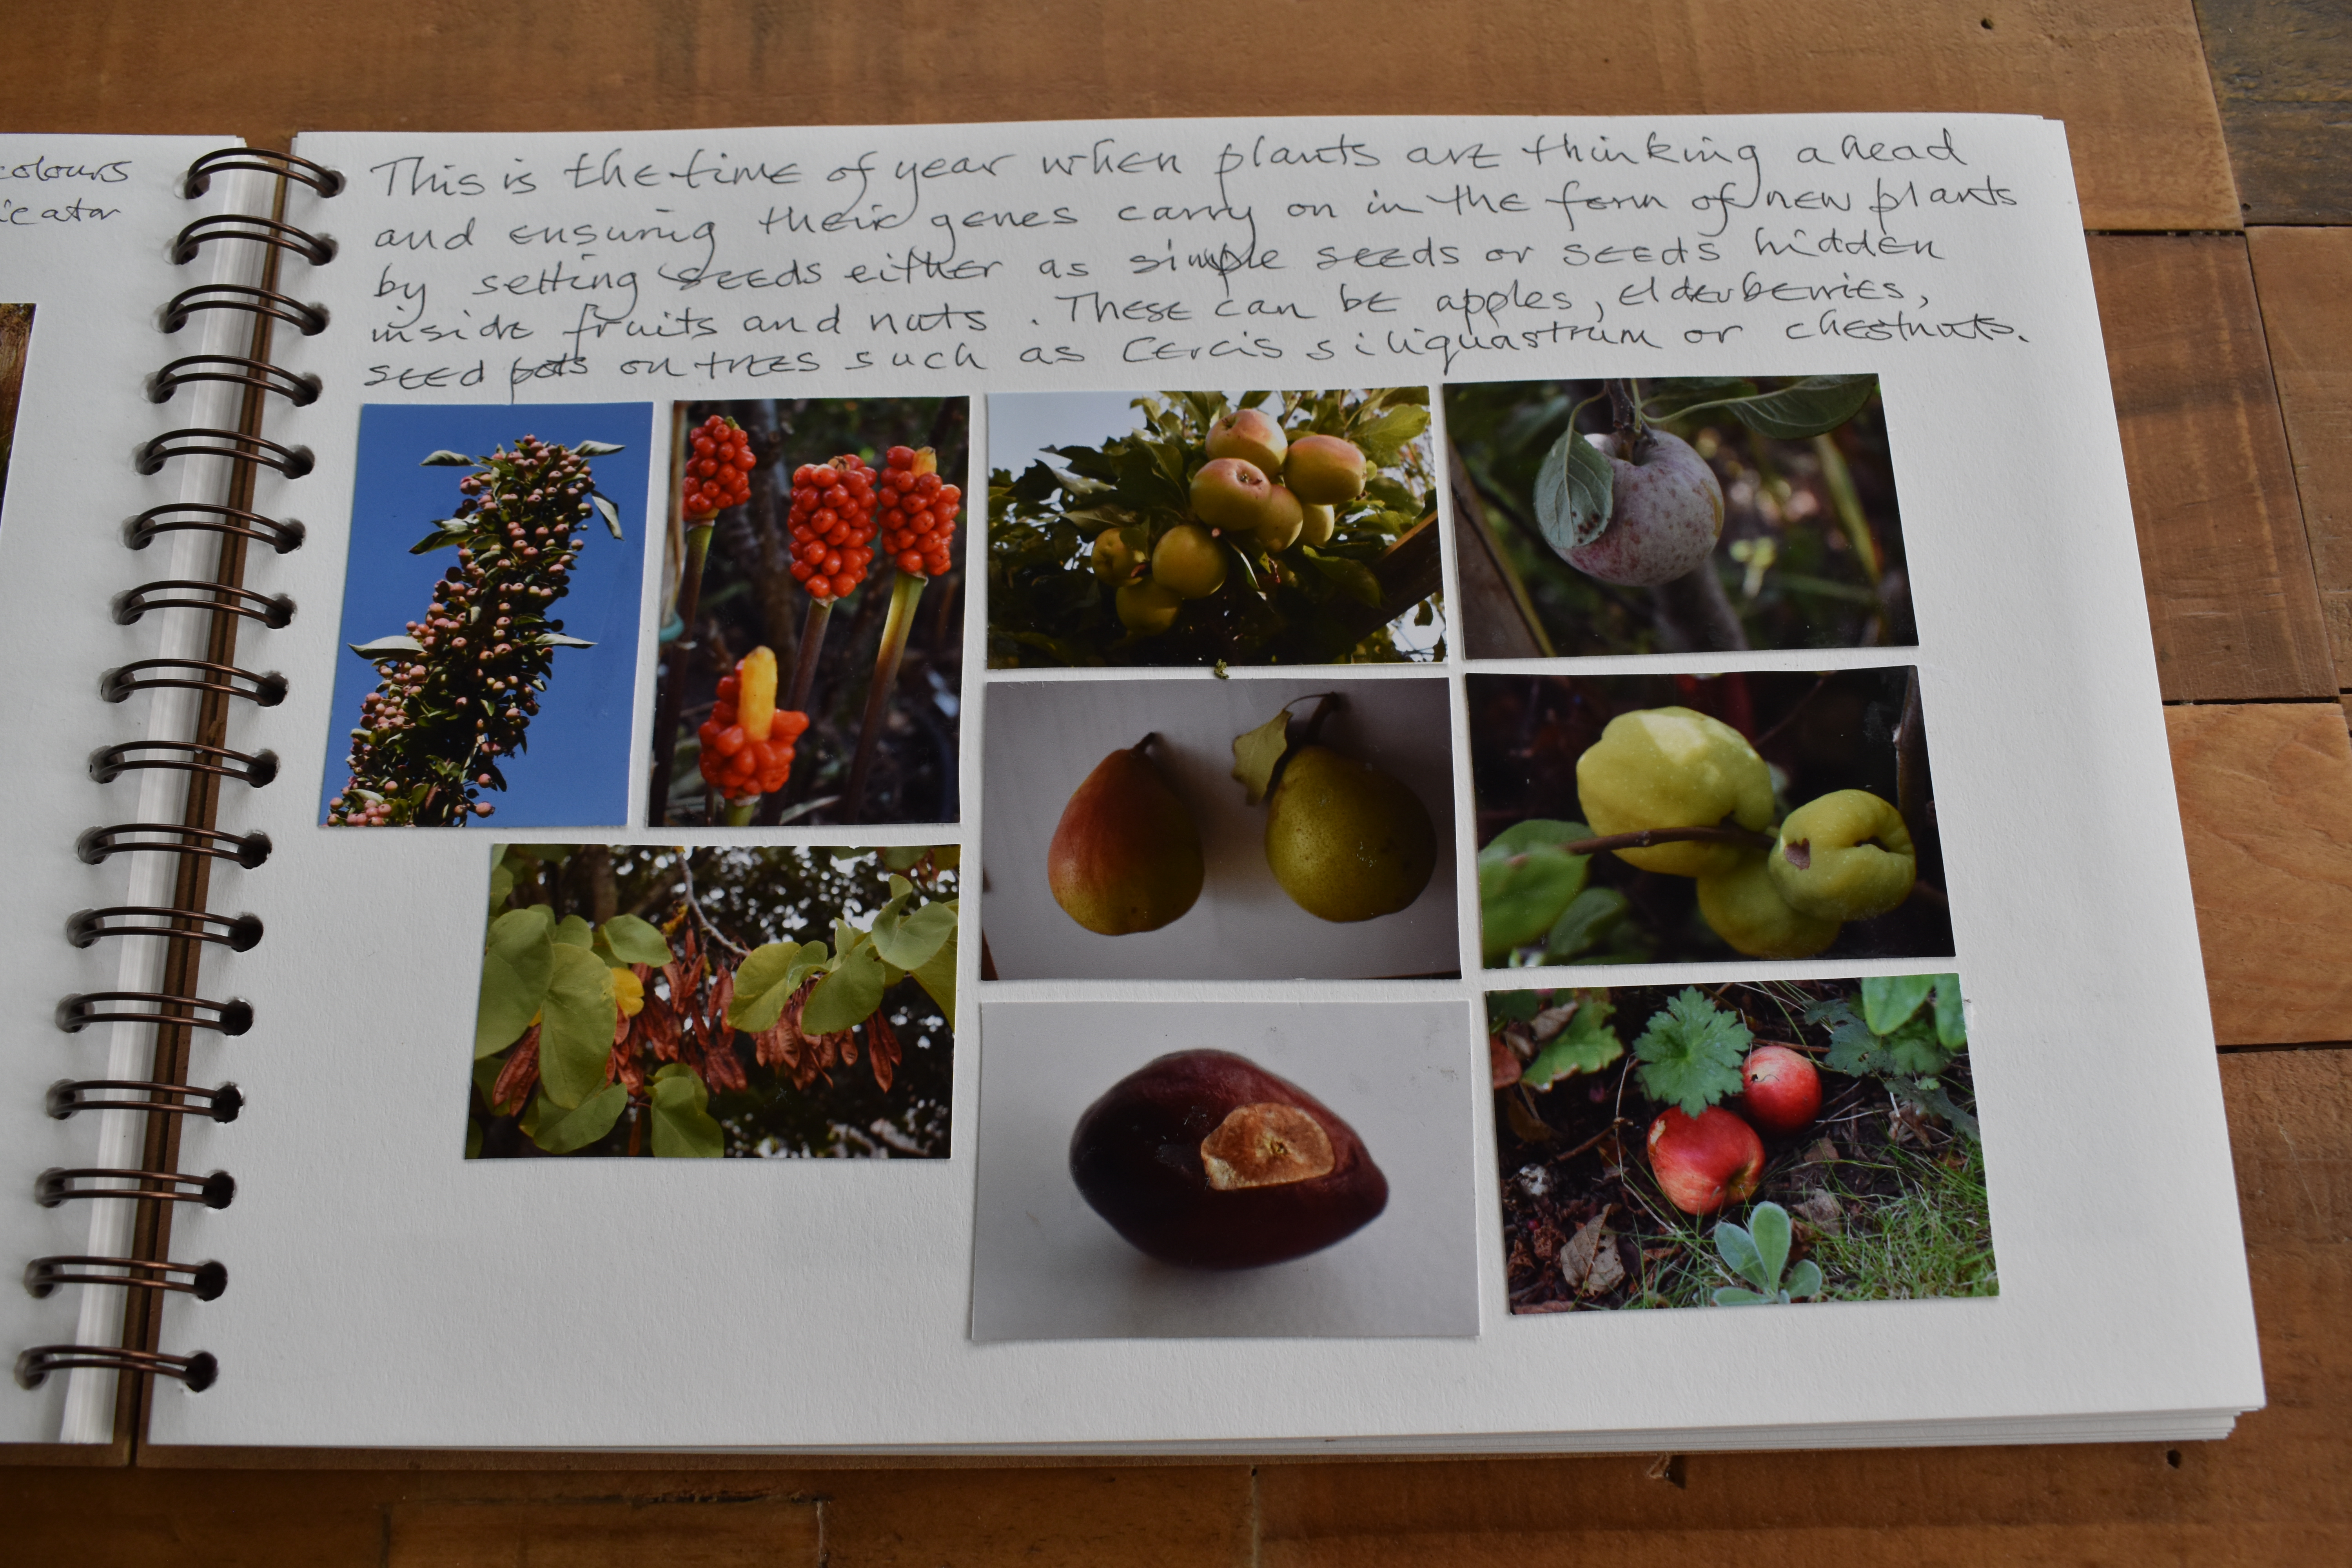 colours
icator
This is the time of year when plants are thinking ahead
and ensuring their genes carry on in the form of new plants
by setting seeds either as simple seeds or seeds hidden
inside fruits and nuts. These can be apples, elderberries,
seed pots on trees such as Cercis siliquastrum or chestnuts.